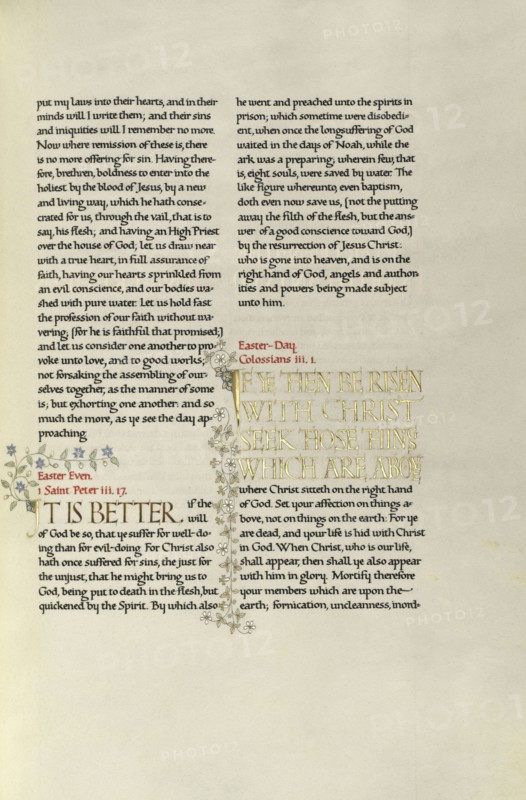 put my laws into their hearts, and in their
minds will I write them; and their sins
and iniquities will I remember no more.
Now where remission of these is, there
is no more offering for sin. Having there-
fore, brethren, boldness to enter into the
holiest by the blood of Jesus, by a new
and living way, which he hath conse-
crated for us, through the vail, that is to
say, his flesh; and having an High Priest
over the house of God; let us draw near
with a true heart, in full assurance of
faith, having our hearts sprinkled from
an evil conscience, and our bodies wa-
shed with pure water. Let us hold fast
the profession of our faith without wa-
vering; (for he is faithful that promised;)
and let us consider one another to pro-
voke unto love, and to good works;
not forsaking the assembling of our-
selves together, as the manner of some
is; but exhorting one another: and so
much the more, as ye see the day ap-
proaching
Easter Even.
1 Saint Peter iii. 17.
IT IS BETTER, if the
will
of God be so, that ye suffer for well-do-
ing than for evil-doing. For Christ also
hath once suffered for sins, the just for
the unjust, that he might bring us to
God, being put to death in the flesh, but
quickened by the Spirit. By which also
he went and preached unto the spirits in
prison; which sometime were disobedi-
ent, when once the longsuffering of God
waited in the days of Noah, while the
ark was a preparing; wherein few, that
is, eight souls, were saved by water. The
like figure whereunto, even baptism,
doth even now save us, (not the putting
away the filth of the flesh, but the ans-
wer of a good conscience toward God,)
by the resurrection of Jesus Christ:
who is gone into heaven, and is on the
right hand of God, angels and author-
ities and powers being made subject
unto him.
Easter-Day.
Colossians iii. 1.
IF YE THEN BE RISEN
WITH CHRIST
SEEK THOSE THINS
WHICH ARE ABOVE
where Christ sitteth on the right hand
of God. Set your affection on things a-
bove, not on things on the earth: For ye
are dead, and your life is hid with Christ
in God. When Christ, who is our life,
shall appear, then shall ye also appear
with him in glory. Mortify therefore
your members which are upon the
earth; fornication, uncleanness, inord-
PHOTO12